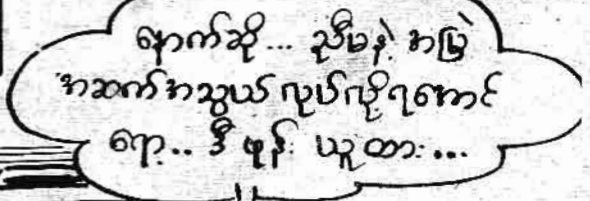 နောက်ဆို... ညီမနဲ့ အမြဲ
အဆက်အသွယ် လုပ်လို့ရအောင်
ရော့.. ဒီ ဖုန်း ယူထား...